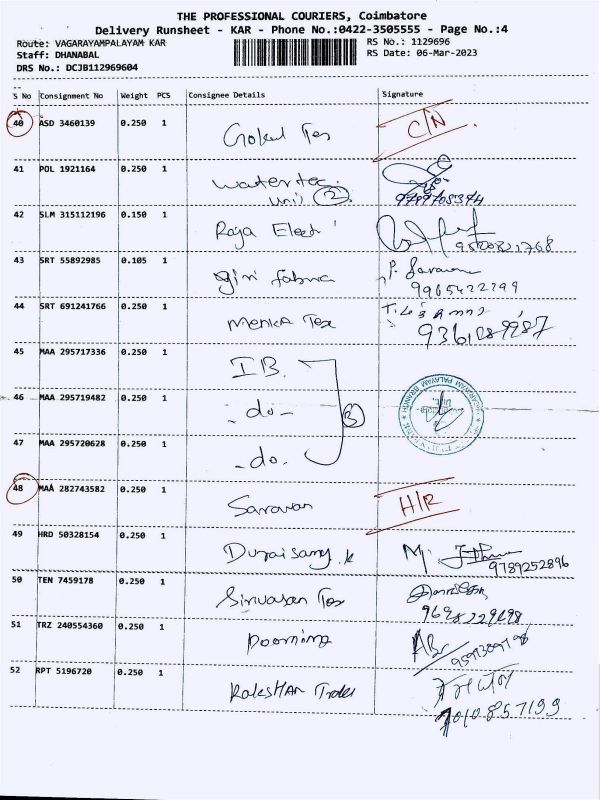 THE PROFESSIONAL COURIERS, Coimbatore
Delivery Runsheet - KAR - Phone No.:0422-3505555 - Page No.:4
Route: VAGARAYAMPALAYAM KAR RS No.: 1129696
Staff: DHANABAL RS Date: 06-Mar-2023
DRS No.: DCJB112969604
S No Consignment No Weight PCS Consignee Details Signature
40 ASD 3460139 0.250 1 Gokul Tex C/N
41 POL 1921164 0.250 1 Watertec
Unit 2
42 SLM 315112196 0.150 1 Raja Elect
43 SRT 55892985 0.105 1 giri fabric P. Saravana
9965422299
44 SRT 691241766 0.250 1 Menka Tex
45 MAA 295717336 0.250 1 IB
46 MAA 295719482 0.250 1 -do- 3
47 MAA 295720628 0.250 1 -do-
48 MAA 282743582 0.250 1 Saravan H/R
49 HRD 50328154 0.250 1 Duraisamy.k M.
9789252896
50 TEN 7459178 0.250 1 Sinuasan Tex
51 TRZ 240554360 0.250 1 Poornima
52 RPT 5196720 0.250 1 Rakesthan Trades
7010857199